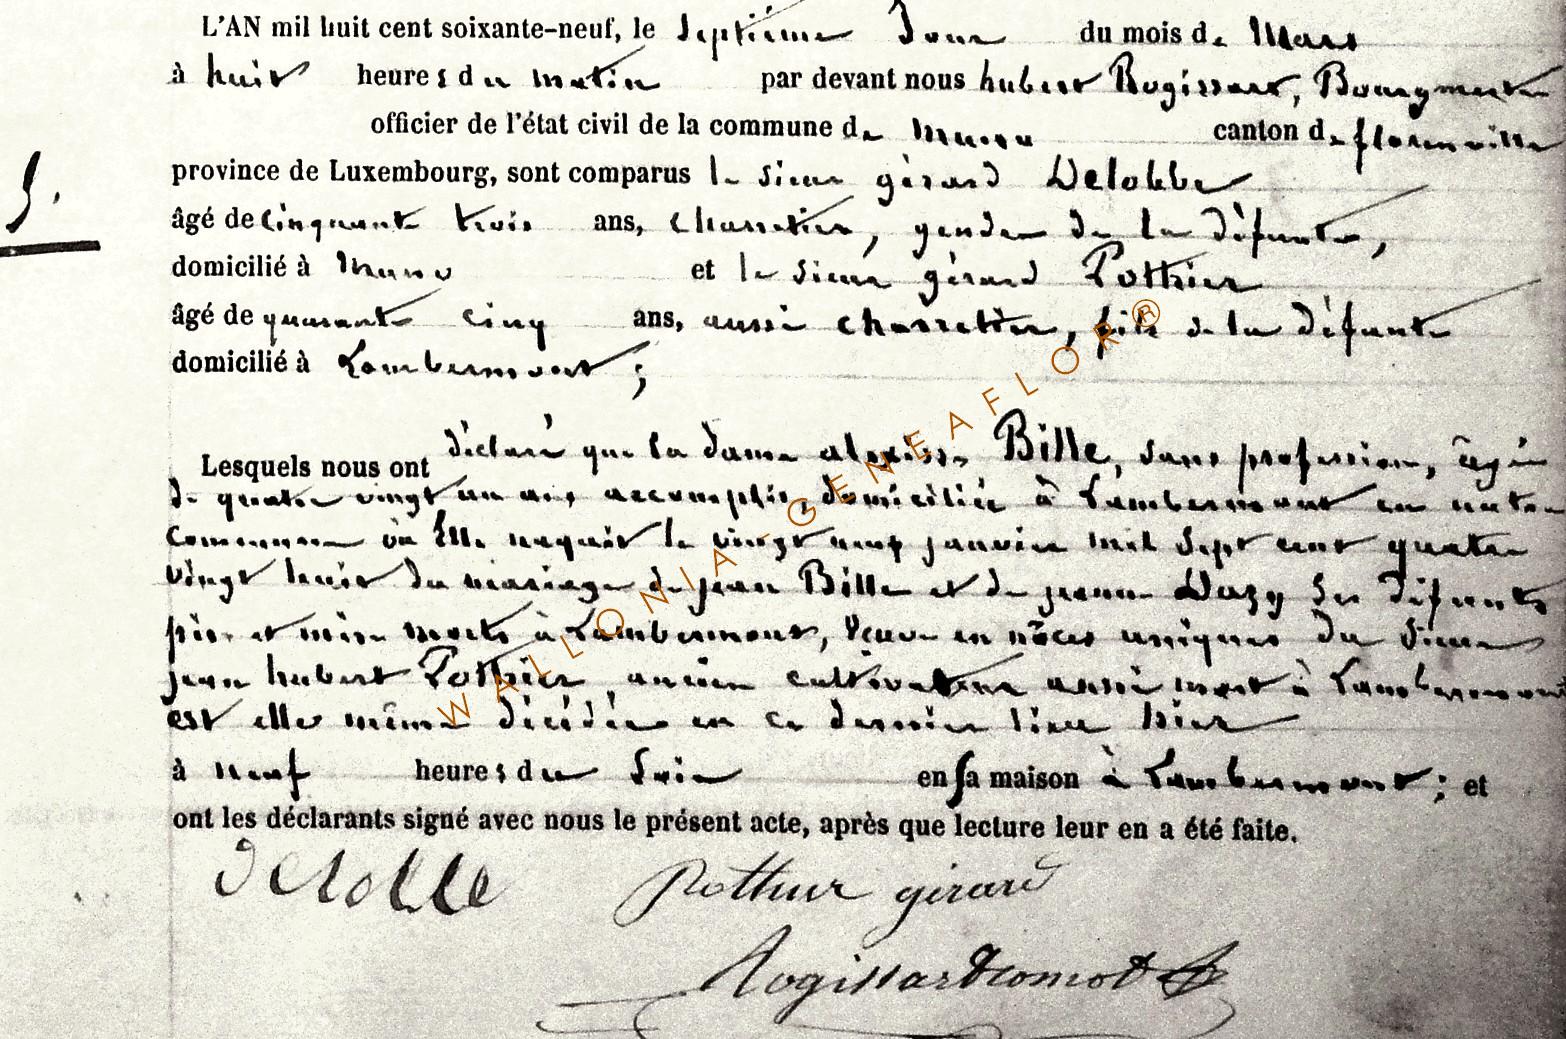 L'AN mil huit cent soixante-neuf, le Septième Jour du mois de Mars
à huit heures du matin par devant nous hubert Rogissart, Bourgmestre
officier de l'état civil de la commune de Muno canton de florenville
5.
province de Luxembourg, sont comparus le sieur gérard Delobbe
âgé de cinquante trois ans, charretier, gendre de la défunte,
domicilié à Muno et le sieur gérard Pothier
âgé de quarante cinq ans, aussi charretier, fils de la défunte
domicilié à Lambermont ;
Lesquels nous ont déclaré que la dame Bille, sans profession, âgée
de quatre vingt un ans accomplis, domiciliée à Lambermont en notre
commune où Elle naquit le vingt neuf janvier mil sept cent quatre
vingt huit du mariage de jean Bille et de jeanne Dazy Ses défunts
père et mère morts à Lambermont, Veuve en nôces uniques du Sieur
jean hubert Pothier, ancien cultivateur aussi mort à Lambermont
est elle même décédée en ce dernier lieu hier
à neuf heures du Soir en sa maison à Lambermont ; et
ont les déclarants signé avec nous le présent acte, après que lecture leur en a été faite.
delobbe Pothier gérard
WALLONIA-GENEAFLOR®